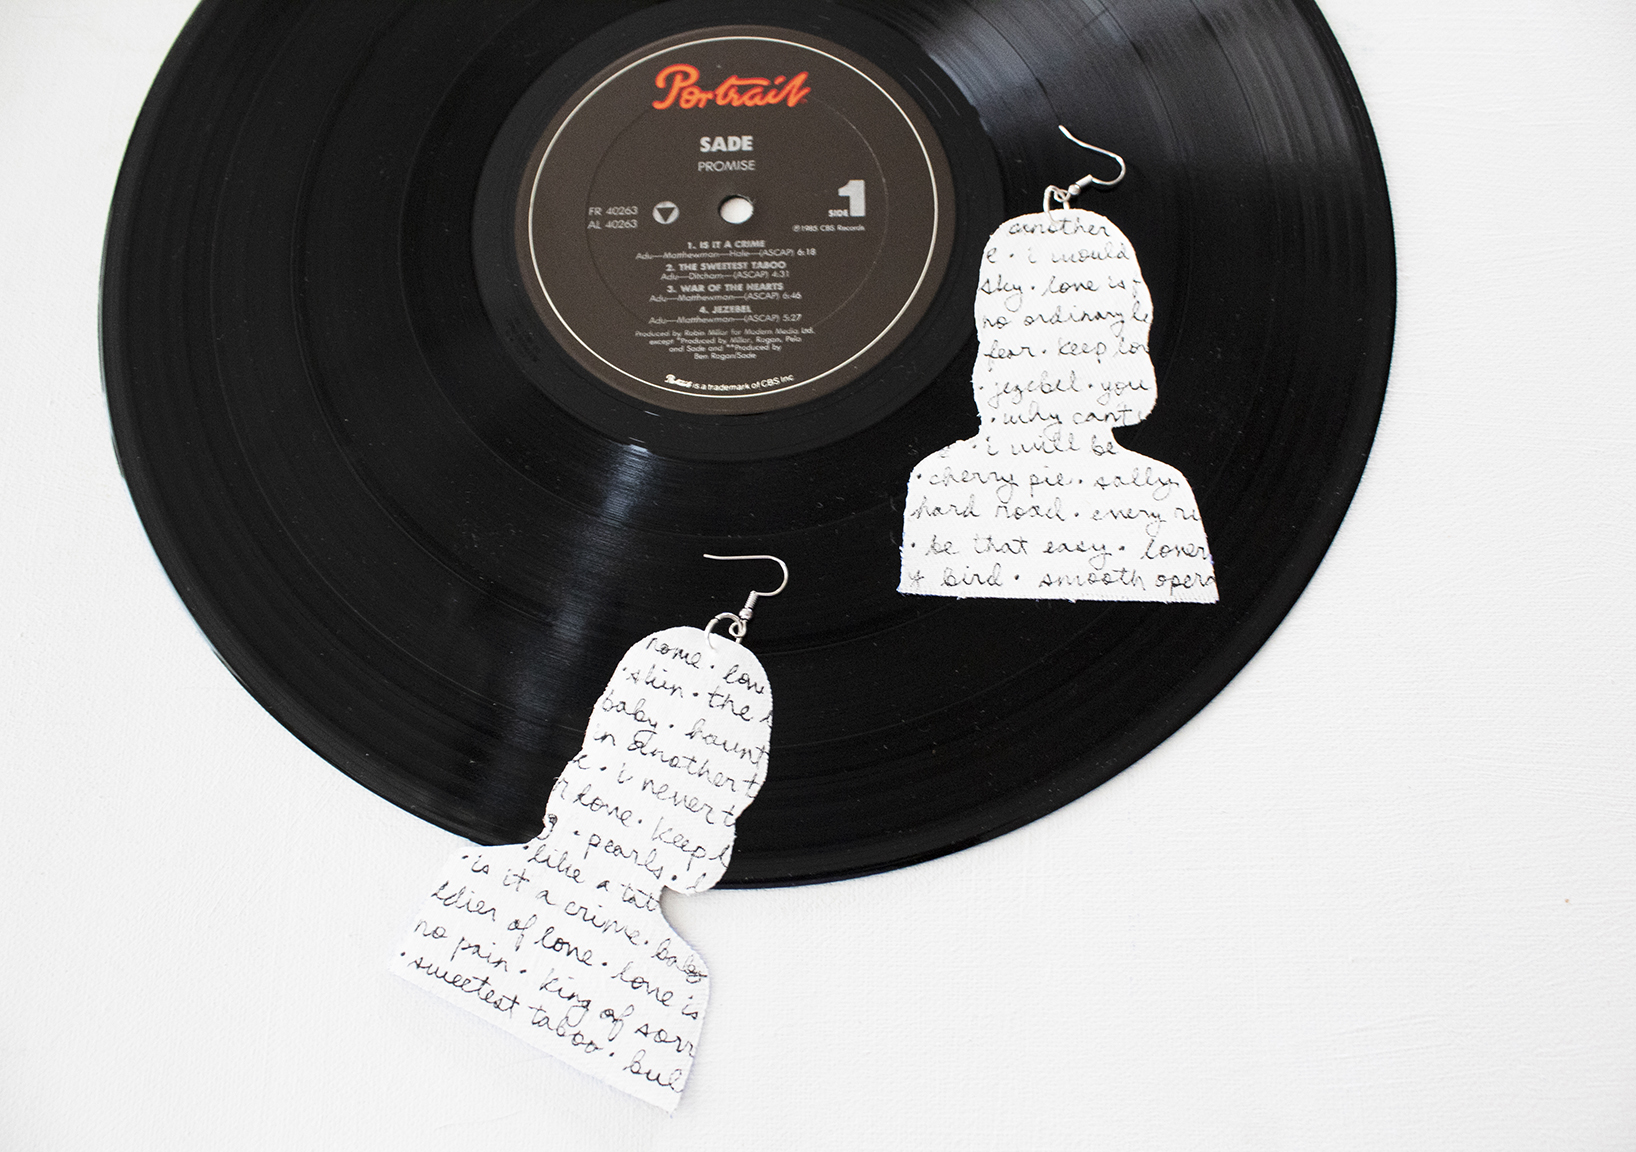 Portrait
SADE
PROMISE
FR 40263
AL 40263
SIDE 1
℗1985 CBS Records
1. IS IT A CRIME
Adu—Matthewman—Hale—(ASCAP) 6:18
2. THE SWEETEST TABOO
Adu—Ditcham—(ASCAP) 4:31
3. WAR OF THE HEARTS
Adu—Matthewman—(ASCAP) 6:46
4. JEZEBEL
Adu—Matthewman—(ASCAP) 5:27
Produced by Robin Millar for Modern Media Ltd.
except *Produced by Millar, Rogan, Pela
and Sade and **Produced by
Ben Rogan/Sade
Portrait is a trademark of CBS Inc
another
e • i would
sky • love is
no ordinary
fear • keep lov
• jezebel • you
• why can't
• i will be
• cherry pie • sally
hard road • every
• be that easy • lover
bird • smooth oper
love
• skin • the
baby • haunt
in another t
e • i never t
r love • keep l
• pearls •
• like a tat
• is it a crime • bab
ldier of love • love is
no pain • king of sorr
• sweetest taboo • bul